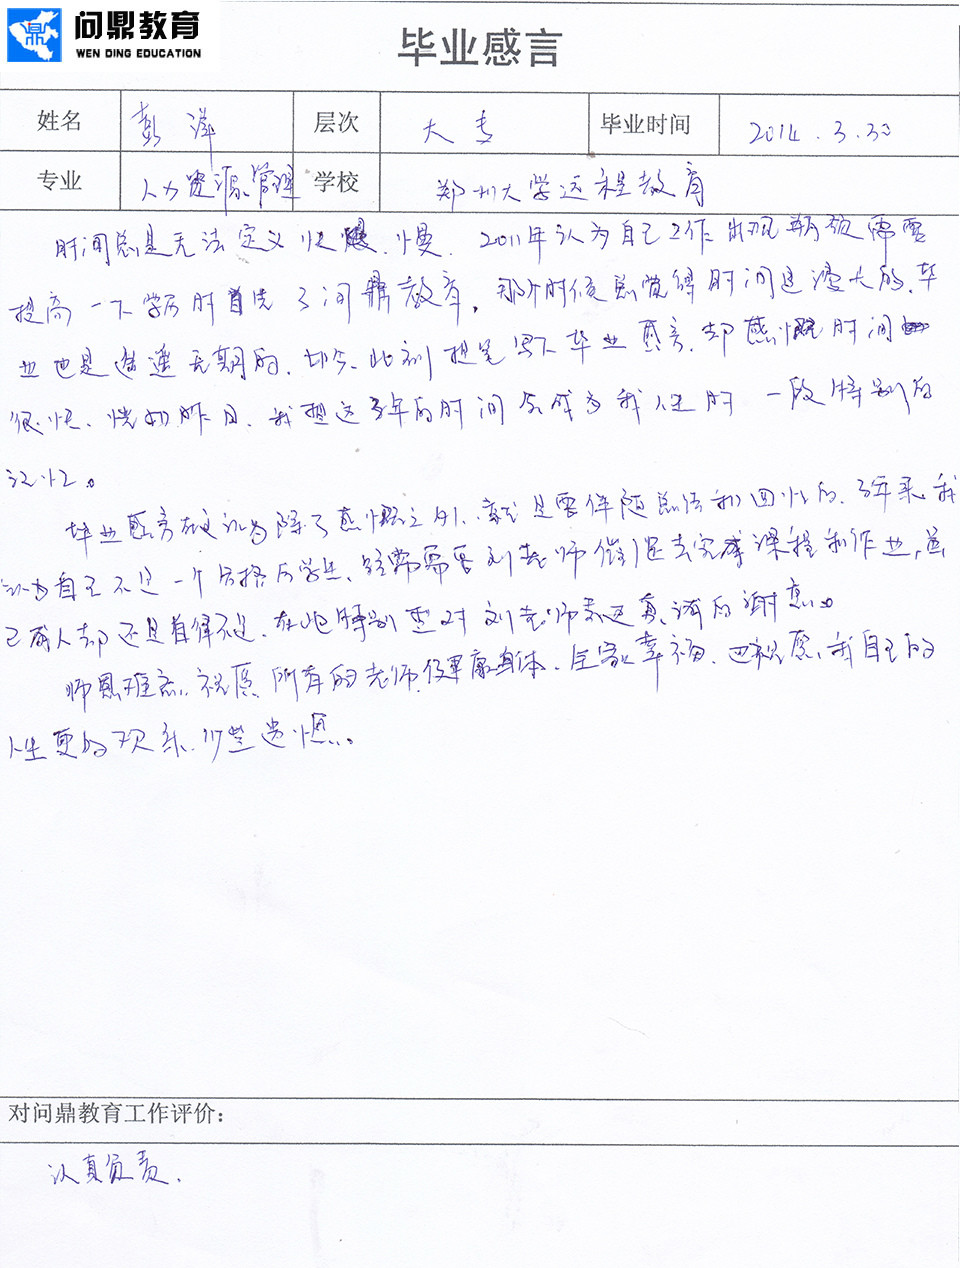 问鼎教育
WEN DING EDUCATION
毕业感言
姓名 彭洋 层次 大专 毕业时间 2014.3.30
专业 人力资源管理 学校 郑州大学远程教育
时间总是无法定义快慢.慢. 2011年认为自己工作出现瓶颈需要
提高一下学历时首选了问鼎教育,那个时候总觉得时间是漫长的,毕
业也是遥遥无期的.如今.此刻提笔写下毕业感言,却感慨时间
很快、恍如昨日.我想这3年的时间会成为我人生的一段特别的
记忆。
毕业感言在认为除了感慨之外,就是要伴随总结和回忆的.3年来我
认为自己不是一个合格的学生、经常需要刘老师催促去完成课程和作业,
已成人却还是自律不足.在此特别要对刘老师表达真诚的谢意。
师恩难忘.祝愿所有的老师健康身体.全家幸福.也祝愿我自己的
人生更的欢乐.少些遗憾.。
对问鼎教育工作评价:
认真负责.